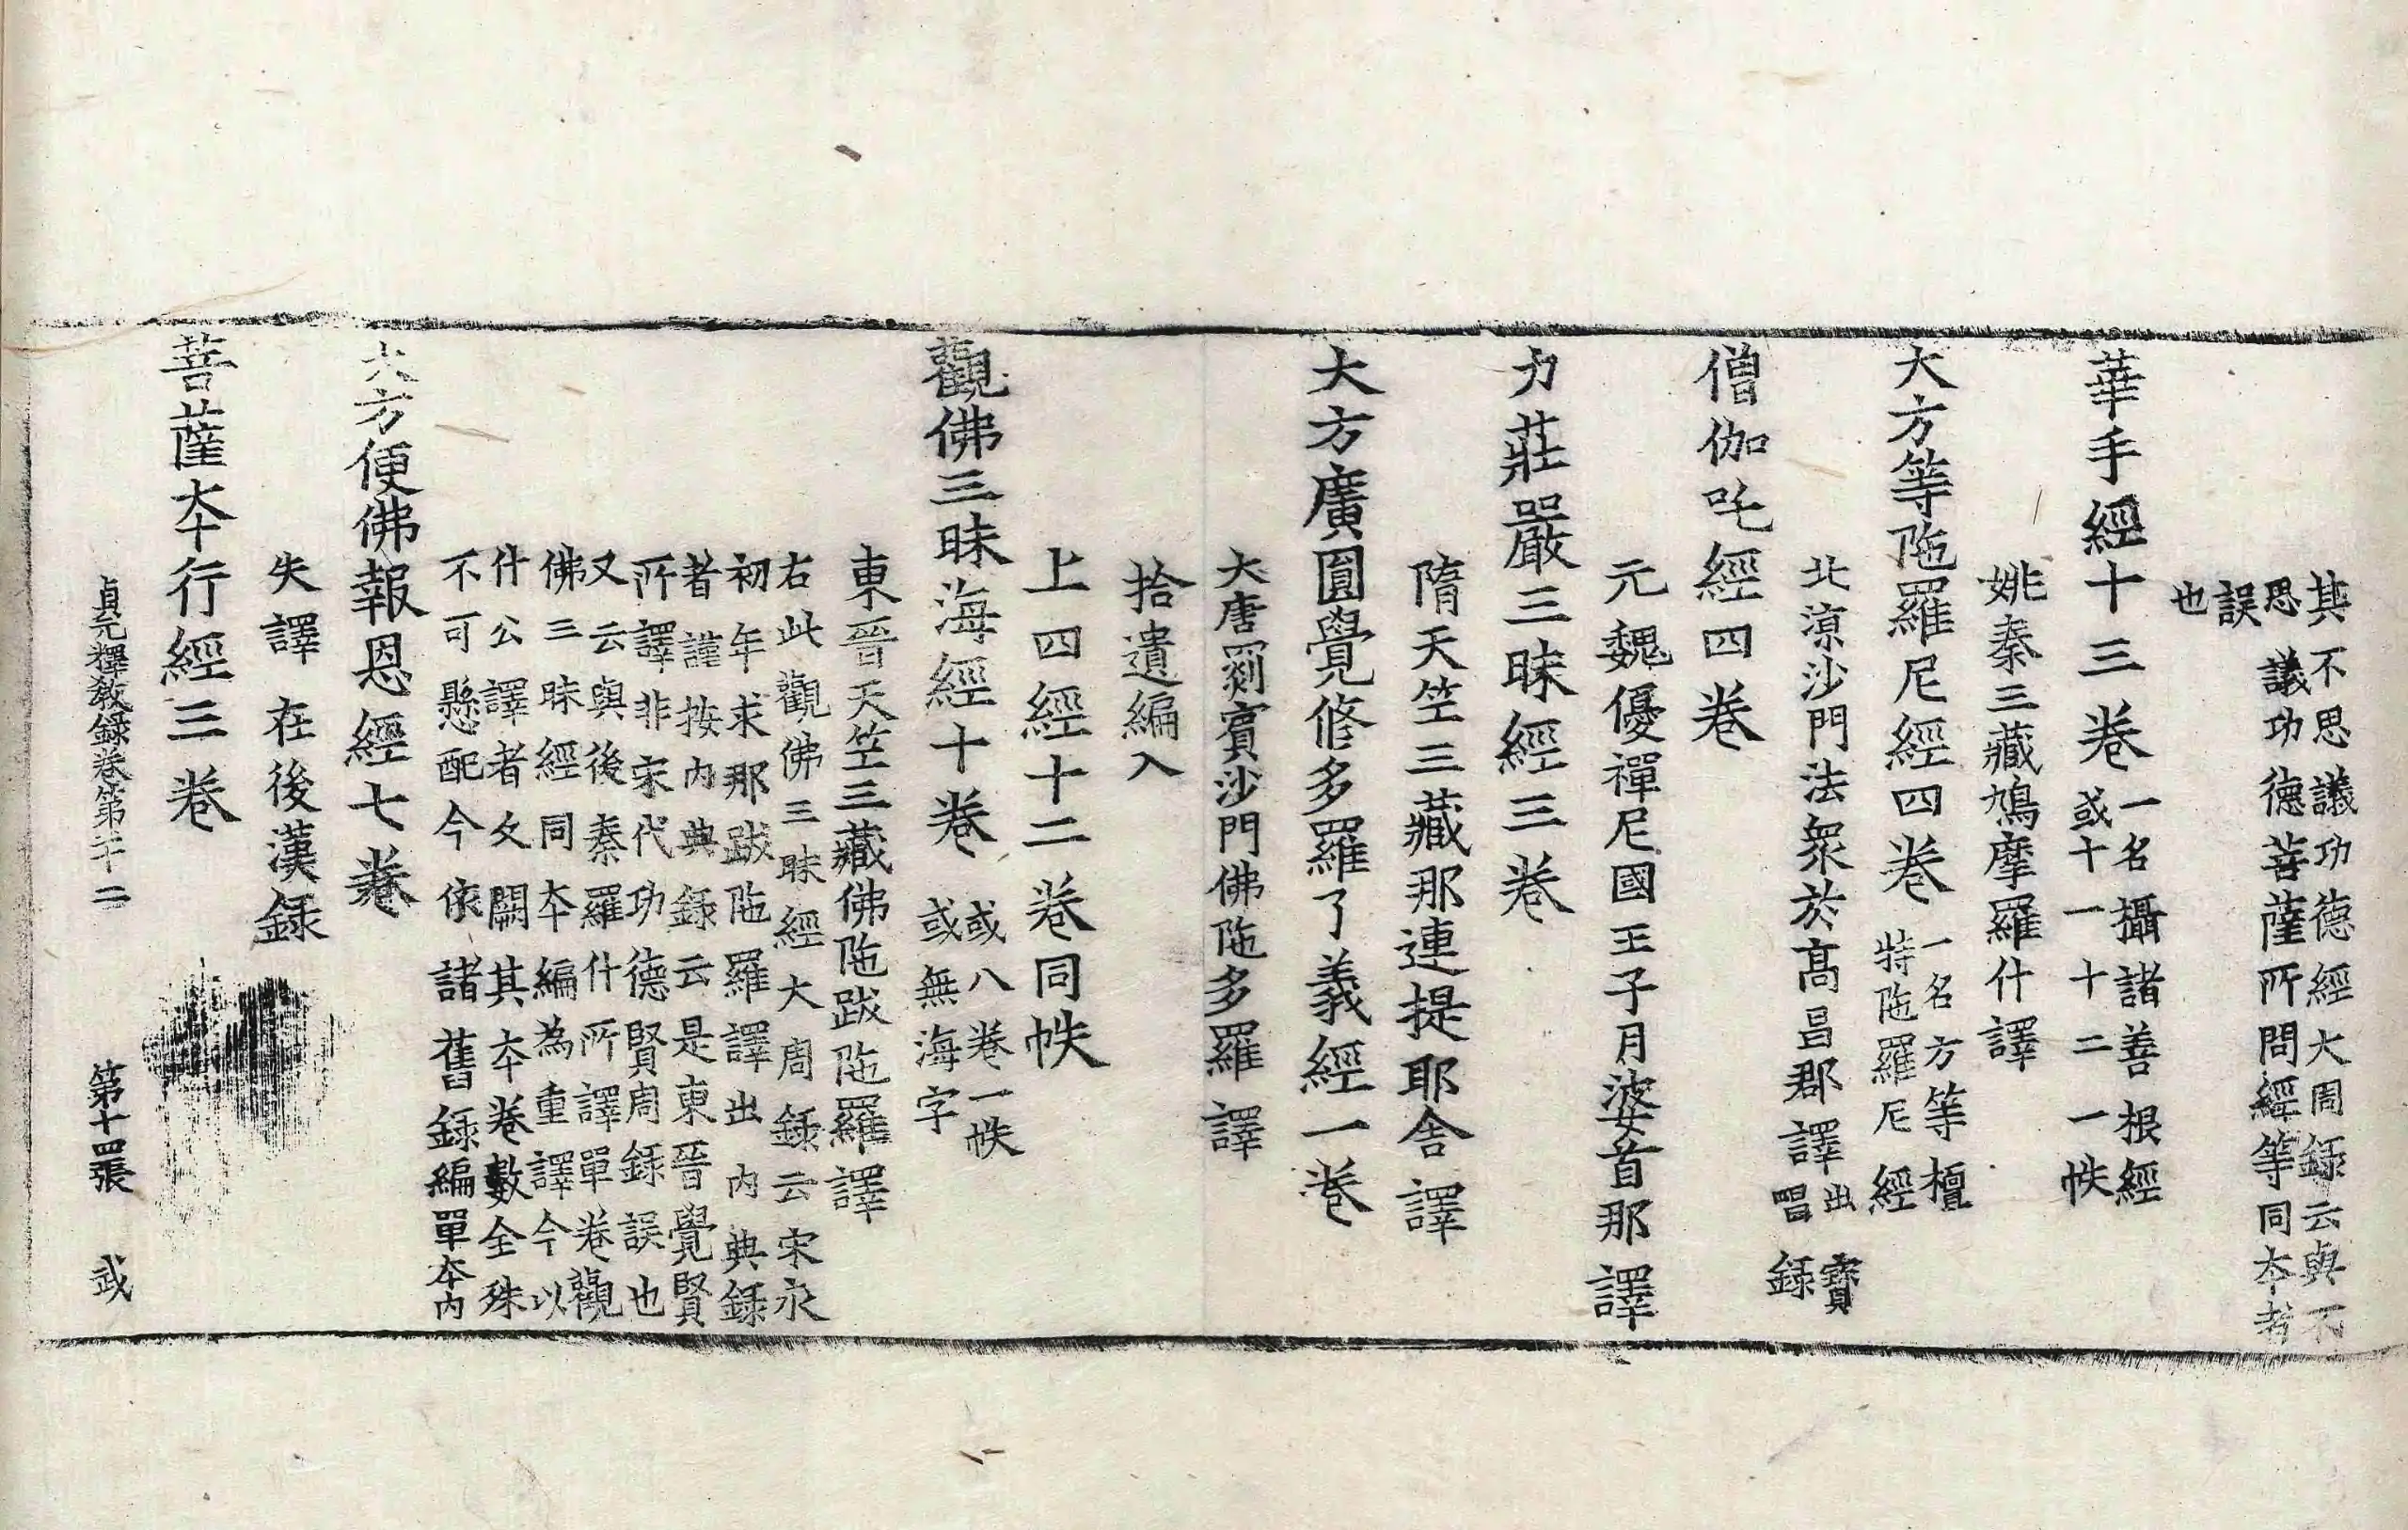 其不思議功德經大周録云與不
思議功德菩薩所問經等同夲者
誤
也
華手經十三卷一名攝諸善根經
或十一十二一帙
姚秦三藏鳩摩羅什譯
大方等陁羅尼經四卷一名方等檀
特陁羅尼經
北涼沙門法衆於高昌郡譯出寶
唱録
僧伽吒經四卷
元魏優禪尼國王子月婆首那譯
力莊嚴三昧經三卷
隋天竺三藏那連提耶舍譯
大方廣圓覺修多羅了義經一卷
大唐罽賓沙門佛陁多羅譯
拾遺編入
上四經十二卷同帙
觀佛三昧海經十卷或八卷一帙
或無海字
東晉天竺三藏佛陁跋陁羅譯
右此觀佛三昧經大周録云宋永
初年求那跋陁羅譯出內典録
者謹按內典録云是東晉覺賢
所譯非宋代功德賢周録誤也
又云與後秦羅什所譯單卷觀
佛三昧經同夲編為重譯今以
什公譯者文闕其夲卷數全殊
不可懸配今依諸舊録編單夲內
大方便佛報恩經七卷
失譯在後漢録
菩薩夲行經三卷
貞元釋教録卷第二十二 第十四張 武